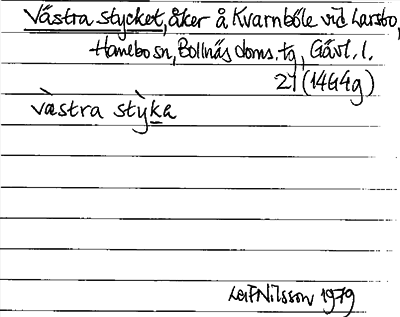 Västra stycket, åker å Kvarnböle vid Larsbo,
Hanebo sn, Bollnäs doms. tg, Gävl. l.
27 (14G4g)
vàstra stỳka
Leif Nilsson 1979